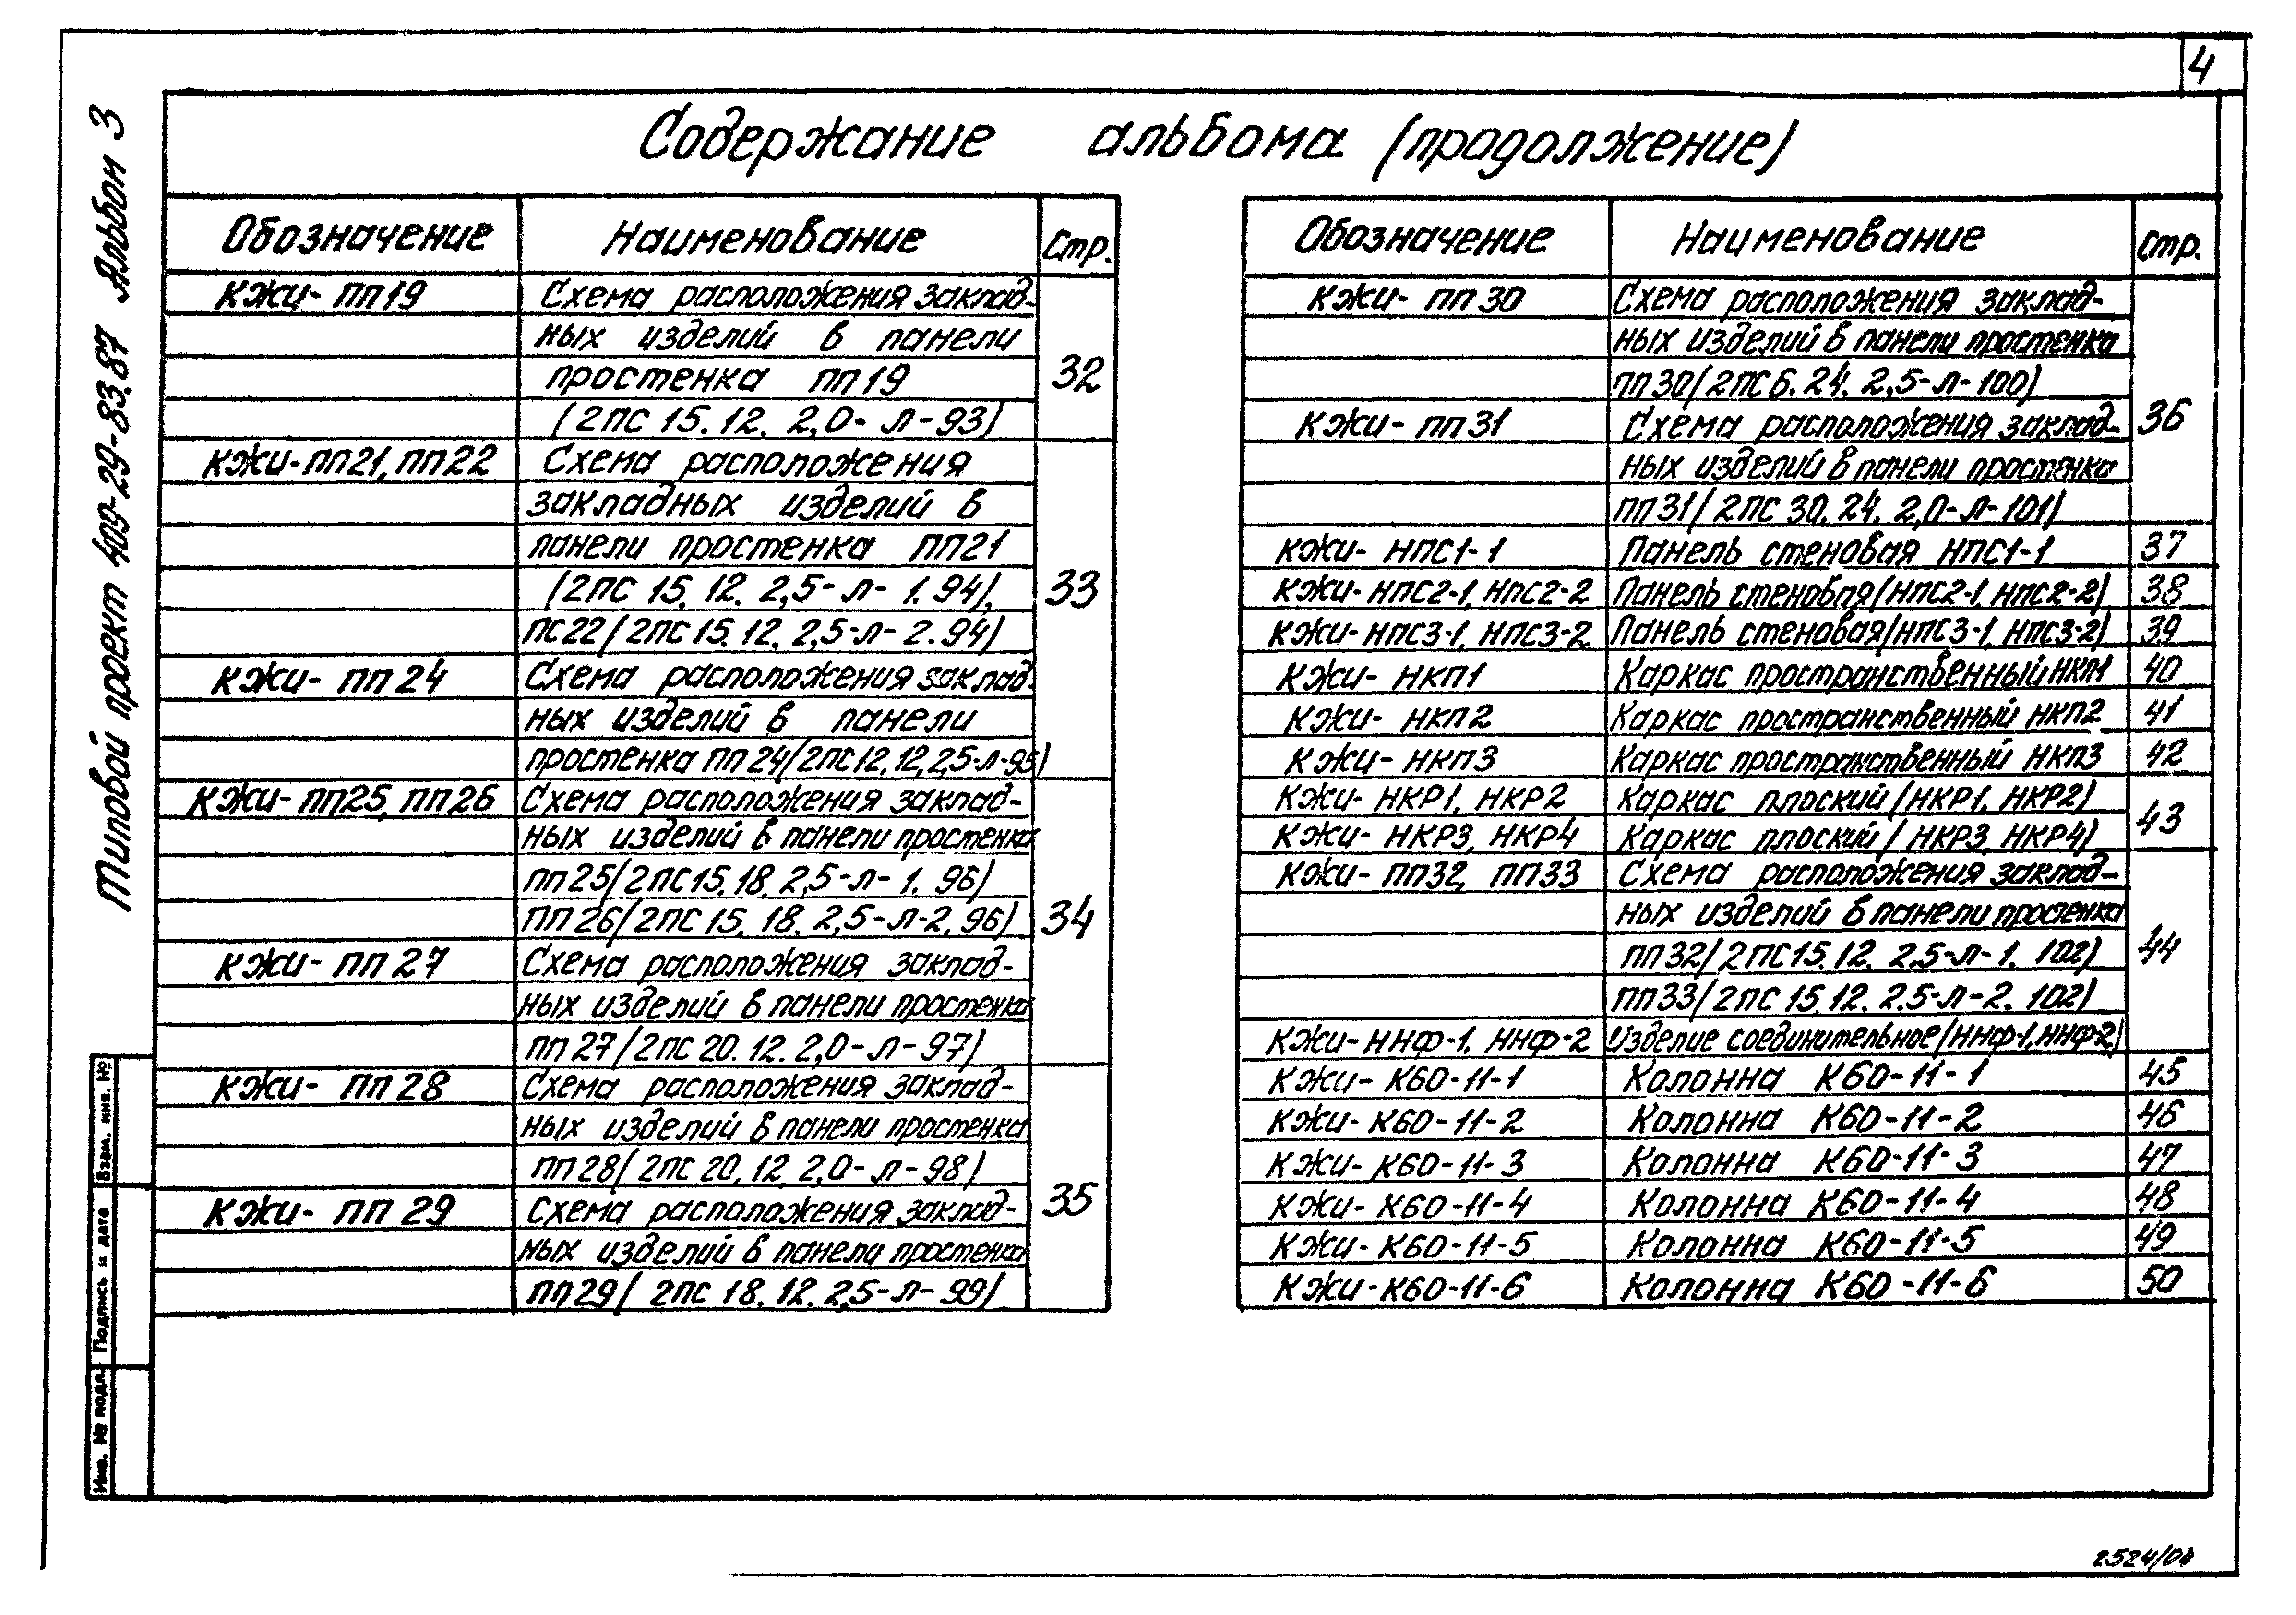 4
Типовой проект 409-29-83.87 Альбом 3
Содержание альбома (продолжение)
Обозначение Наименование Стр.
КЖИ- ПП19 Схема расположения заклад-
ных изделий в панели
простенка ПП19 32
(2ПС 15.12. 2,0- Л-93)
КЖИ-ПП21, ПП22 Схема расположения
закладных изделий в
панели простенка ПП21
(2ПС 15.12. 2,5- Л- 1.94), 33
ПС22 (2ПС 15.12. 2,5-Л- 2.94)
КЖИ- ПП24 Схема расположения заклад-
ных изделий в панели
простенка ПП24 (2ПС12.12.2,5-Л-95)
КЖИ- ПП25, ПП26 Схема расположения заклад-
ных изделий в панели простенка
ПП25 (2ПС15.18. 2,5-Л- 1. 96)
ПП26 (2ПС 15. 18. 2,5-Л-2. 96) 34
КЖИ- ПП27 Схема расположения заклад-
ных изделий в панели простенка
ПП27 (2ПС 20.12. 2,0-Л-97)
КЖИ- ПП28 Схема расположения заклад-
ных изделий в панели простенка
ПП28 (2ПС 20.12. 2,0- Л-98)
КЖИ- ПП29 Схема расположения заклад- 35
ных изделий в панели простенка
ПП29 (2ПС 18.12. 2,5-Л-99)
Обозначение Наименование Стр.
КЖИ- ПП30 Схема расположения заклад-
ных изделий в панели простенка
ПП30 (2ПС6.24. 2,5-Л-100)
КЖИ- ПП31 Схема расположения заклад- 36
ных изделий в панели простенка
ПП31 (2ПС 30.24. 2,0-Л-101)
КЖИ- НПС1-1 Панель стеновая НПС1-1 37
КЖИ-НПС2-1, НПС2-2 Панель стеновая (НПС2-1, НПС2-2) 38
КЖИ-НПС3-1, НПС3-2 Панель стеновая (НПС3-1, НПС3-2) 39
КЖИ- НКП1 Каркас пространственный НКП1 40
КЖИ- НКП2 Каркас пространственный НКП2 41
КЖИ- НКП3 Каркас пространственный НКП3 42
КЖИ- НКР1, НКР2 Каркас плоский (НКР1, НКР2)
КЖИ- НКР3, НКР4 Каркас плоский (НКР3, НКР4) 43
КЖИ- ПП32, ПП33 Схема расположения заклад-
ных изделий в панели простенка
ПП32 (2ПС15.12. 2.5-Л-1. 102) 44
ПП33 (2ПС 15.12. 2.5-Л-2. 102)
КЖИ-ННФ-1, ННФ-2 Изделие соединительное (ННФ-1, ННФ-2)
КЖИ- К60-11-1 Колонна К60-11-1 45
КЖИ- К60-11-2 Колонна К60-11-2 46
КЖИ- К60-11-3 Колонна К60-11-3 47
КЖИ- К60-11-4 Колонна К60-11-4 48
КЖИ- К60-11-5 Колонна К60-11-5 49
КЖИ-К60-11-6 Колонна К60-11-6 50
Инв. № подл. Подпись и дата Взам. инв. №
2524/04